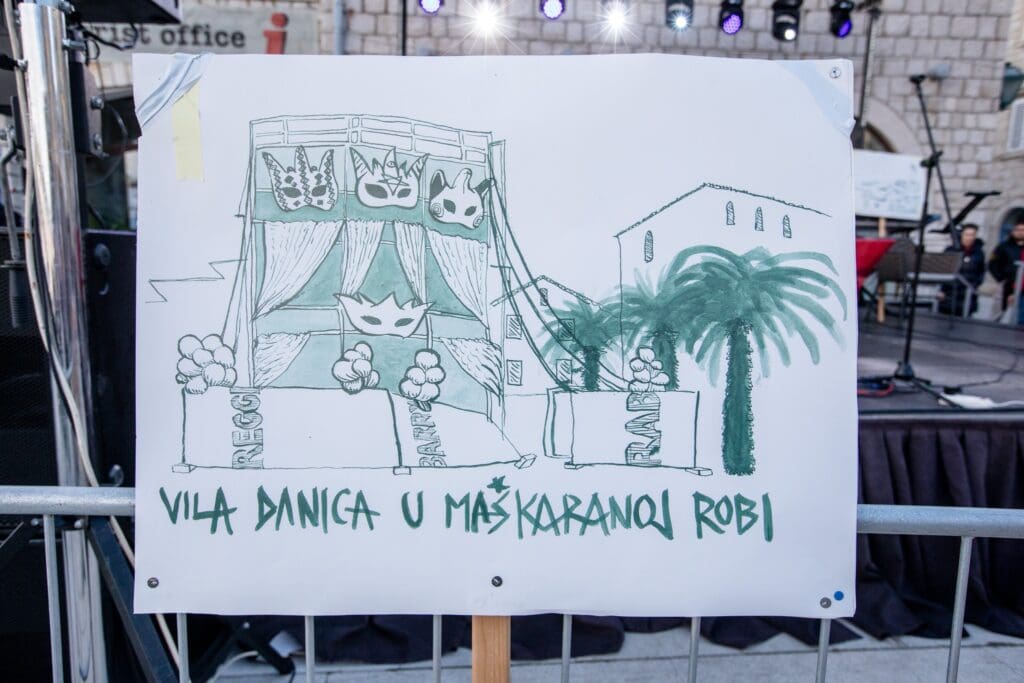 rist office i
REGG
BARRY
VILA DANICA U MAŠKARANOJ ROBI